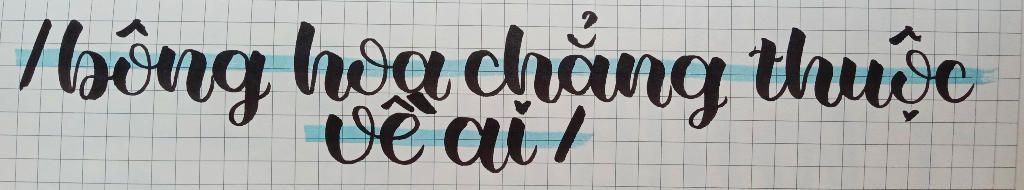 /bông hoa chẳng thuộc
về ai/